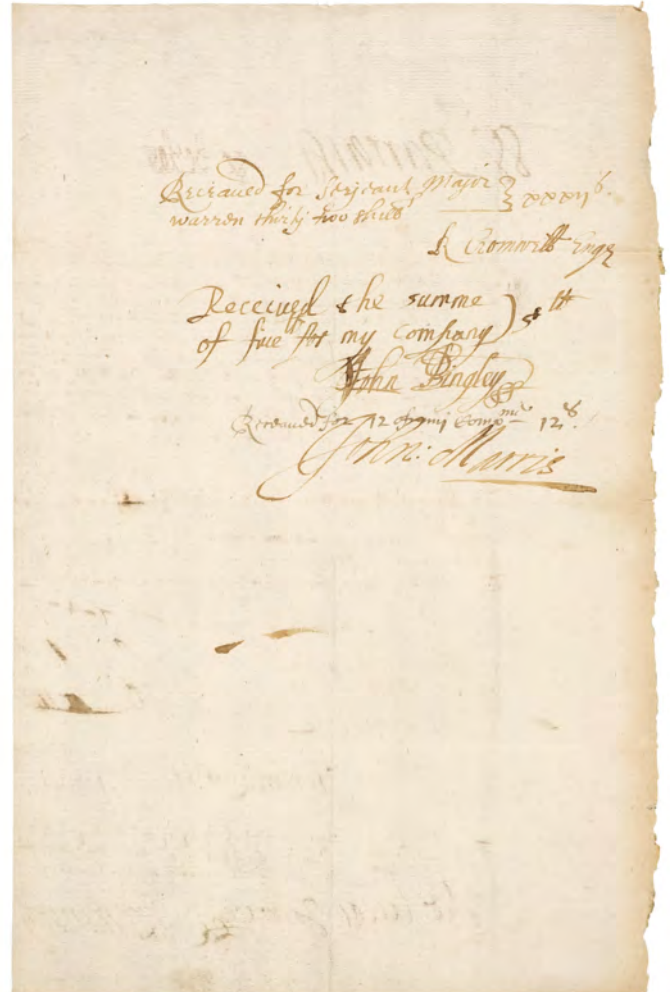 Receaued for Serjeant Major } xxxijs.
warren thirty two shill
R Cromwell
Received the summe ) 5 ll
of five for my company
John Bingley
Receaued for 12 of my Comp 12s.
John: Marris